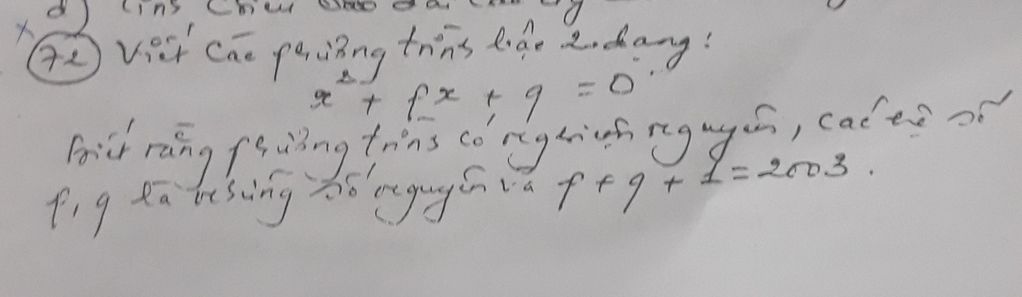 d) tính chiều cao
72 Viết các phương trình bậc 2 dạng:
x² + px + q = 0.
biết rằng phương trình có nghiệm nguyên, các hệ số
p, q là những số nguyên và p + q + 1 = 2003.